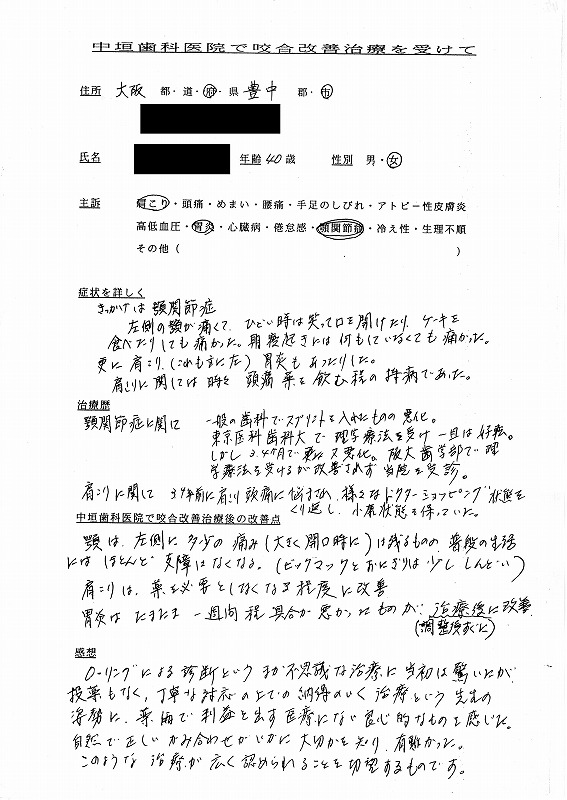 中垣歯科医院で咬合改善治療を受けて
住所 大阪 都・道・府・県 豊中 郡・市
氏名 年齢 40歳 性別 男・女
主訴 肩こり・頭痛・めまい・腰痛・手足のしびれ・アトピー性皮膚炎
高低血圧・胃炎・心臓病・倦怠感・顎関節症・冷え性・生理不順
その他( )
症状を詳しく
きっかけは顎関節症
左側の顎が痛くて、ひどい時は笑って口を開けたり、ケーキを
食べたりしても痛かった。朝寝起きには何もしていなくても痛かった。
更に肩こり、(これも主に左) 胃炎もあったりした。
肩こりに関しては時々頭痛薬を飲む程の持病であった。
治療歴
顎関節症に関して 一般の歯科でスプリントを入れたものの悪化。
東京医科歯科大で理学療法を受け一旦は好転。
しかし3、4ヶ月で更に又悪化。阪大歯学部で理
学療法を受けるが改善されず当院を受診。
肩こりに関して 3、4年前に肩こり頭痛に悩まされ、様々なドクターショッピング状態を
くり返し、小康状態を保っていた。
中垣歯科医院で咬合改善治療後の改善点
顎は、左側に多少の痛み(大きく開口時に)は残るものの、普段の生活
にはほとんど支障はなくなる。(ビックマックとおにぎりは少ししんどい)
肩こりは、薬を必要としなくなる程度に改善
胃炎はたまたま一週間程具合が悪かったものが、治療後に改善
(調整後すぐに)
感想
O-リングによる診断というまか不思議な治療に当初は驚いたが、
投薬もなく、丁寧な対応の上での納得のいく治療という先生の
姿勢に、薬海で利益を出す医療にない良心的なものを感じた。
自然で正しいかみ合わせがいかに大切かを知り、有難かった。
このような治療が広く認められることを切望するものです。